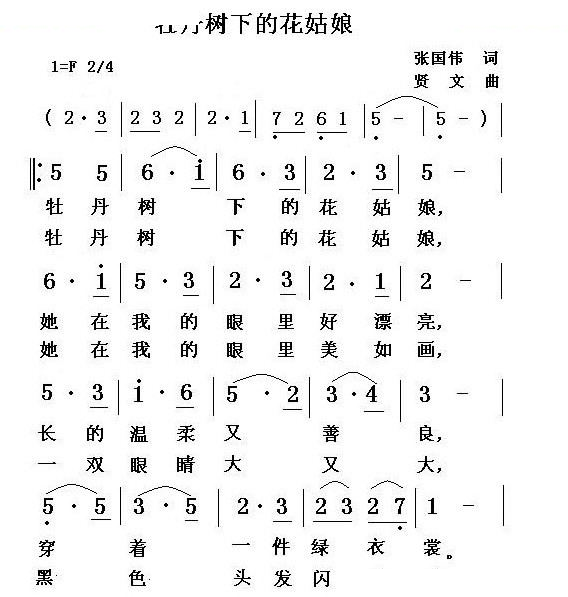 牡丹树下的花姑娘
1=F 2/4
张国伟 词
贤 文 曲
( 2· 3 | 2 3 2 | 2 · 1 | 7 2 6 1 | 5 - | 5 - )
5 5 | 6 · 1 | 6 · 3 | 2 · 3 | 5 -
牡 丹 树 下 的 花 姑 娘,
牡 丹 树 下 的 花 姑 娘,
6 · 1 | 5 · 3 | 2 · 3 | 2 · 1 | 2 -
她 在 我 的 眼 里 好 漂 亮,
她 在 我 的 眼 里 美 如 画,
5 · 3 | 1 · 6 | 5 · 2 | 3 · 4 | 3 -
长 的 温 柔 又 善 良,
一 双 眼 睛 大 又 大,
5 · 5 | 3 · 5 | 2 · 3 | 2 3 2 7 | 1 -
穿 着 一 件 绿 衣 裳。
黑 色 头 发 闪